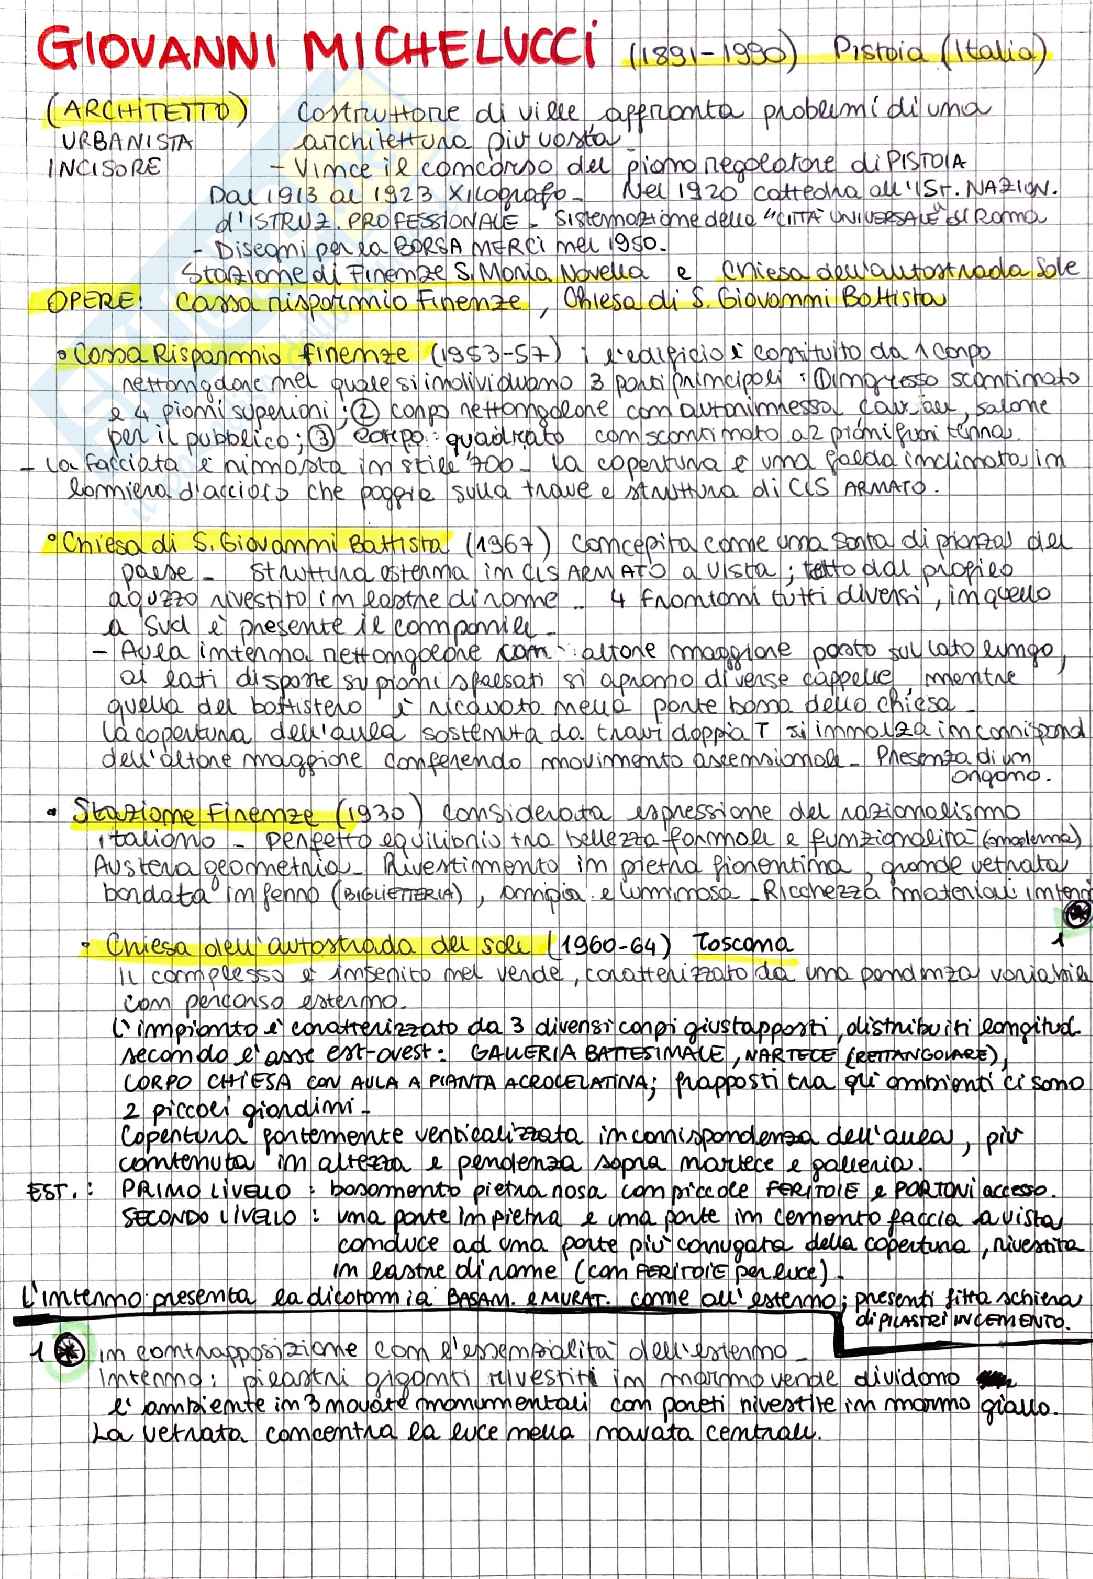 GIOVANNI MICHELUCCI (1891-1990) Pistoia (Italia)
(ARCHITETTO) Costruttore di ville affronta problemi di una
URBANISTA architettura più vasta -
INCISORE - Vince il concorso del piano regolatore di PISTOIA
Dal 1913 al 1923 Xilografo - Nel 1920 cattedra all'IST. NAZION.
d'ISTRUZ. PROFESSIONALE - Sistemazione della "CITTÀ UNIVERSALE" di Roma
- Disegni per la BORSA MERCI nel 1950.
Stazione di Firenze S. Maria Novella e Chiesa dell'autostrada sole
OPERE: Cassa risparmio Firenze, Chiesa di S. Giovanni Battista
• Cassa Risparmio Firenze (1953-57) : l'edificio è costituito da 1 corpo
rettangolare nel quale si individuano 3 parti principali : ① ingresso scantinato
e 4 piani superiori; ② corpo rettangolare con autorimessa, caveau, salone
per il pubblico; ③ corpo quadrato con scantinato a 2 piani fuori terra
- La facciata è rimasta in stile '700 - La copertura è una falda inclinata in
lamiera d'acciaio che poggia sulla trave e struttura di CLS ARMATO.
• Chiesa di S. Giovanni Battista (1967) Concepita come una sorta di piazza del
paese - Struttura esterna in CLS ARMATO a vista; tetto dal profilo
aguzzo rivestito in lastre di rame - 4 frontoni tutti diversi, in quello
a sud è presente il campanile -
- Aula interna rettangolare con altare maggiore posto sul lato lungo,
ai lati disposte su piani sfalsati si aprono diverse cappelle, mentre
quella del battistero è ricavato nella parte bassa della chiesa -
La copertura dell'aula sostenuta da travi doppia T si innalza in corrispond
dell'altare maggiore conferendo movimento ascensionale - Presenza di un
organo.
• Stazione Firenze (1930) considerata espressione del razionalismo
italiano - perfetto equilibrio tra bellezza formale e funzionalità (moderna)
Austera geometria - Rivestimento in pietra fiorentina, grande vetrata
bordata in ferro (BIGLIETTERIA), ampia e luminosa - Ricchezza materiali interni
1 ✱
• Chiesa dell'autostrada del sole (1960-64) Toscana
Il complesso è inserito nel verde, caratterizzato da una pendenza variabile
con percorso esterno.
L'impianto è caratterizzato da 3 diversi corpi giustapposti, distribuiti longitud.
secondo l'asse est-ovest: GALLERIA BATTESIMALE, NARTECE (RETTANGOLARE),
CORPO CHIESA CON AULA A PIANTA ACROCELATINA; frapposti tra gli ambienti ci sono
2 piccoli giardini -
Copertura fortemente verticalizzata in corrispondenza dell'aula, più
contenuta in altezza e pendenza sopra nartece e galleria.
EST.: PRIMO LIVELLO : basamento pietra rosa con piccole FERITOIE e PORTONI accesso.
SECONDO LIVELLO : una parte in pietra e una parte in cemento faccia a vista
conduce ad una parte più corrugata della copertura, rivestita
in lastre di rame (con FERITOIE per luce) -
L'interno presenta la dicotomia BASAM. e MURAT. come all'esterno; presenti fitta schiera
di PILASTRI IN CEMENTO.
1 ✱ in contrapposizione con l'essenzialità dell'esterno -
Interno: pilastri giganti rivestiti in marmo verde dividono
l'ambiente in 3 navate monumentali con pareti rivestite in marmo giallo.
La vetrata concentra la luce nella navata centrale.